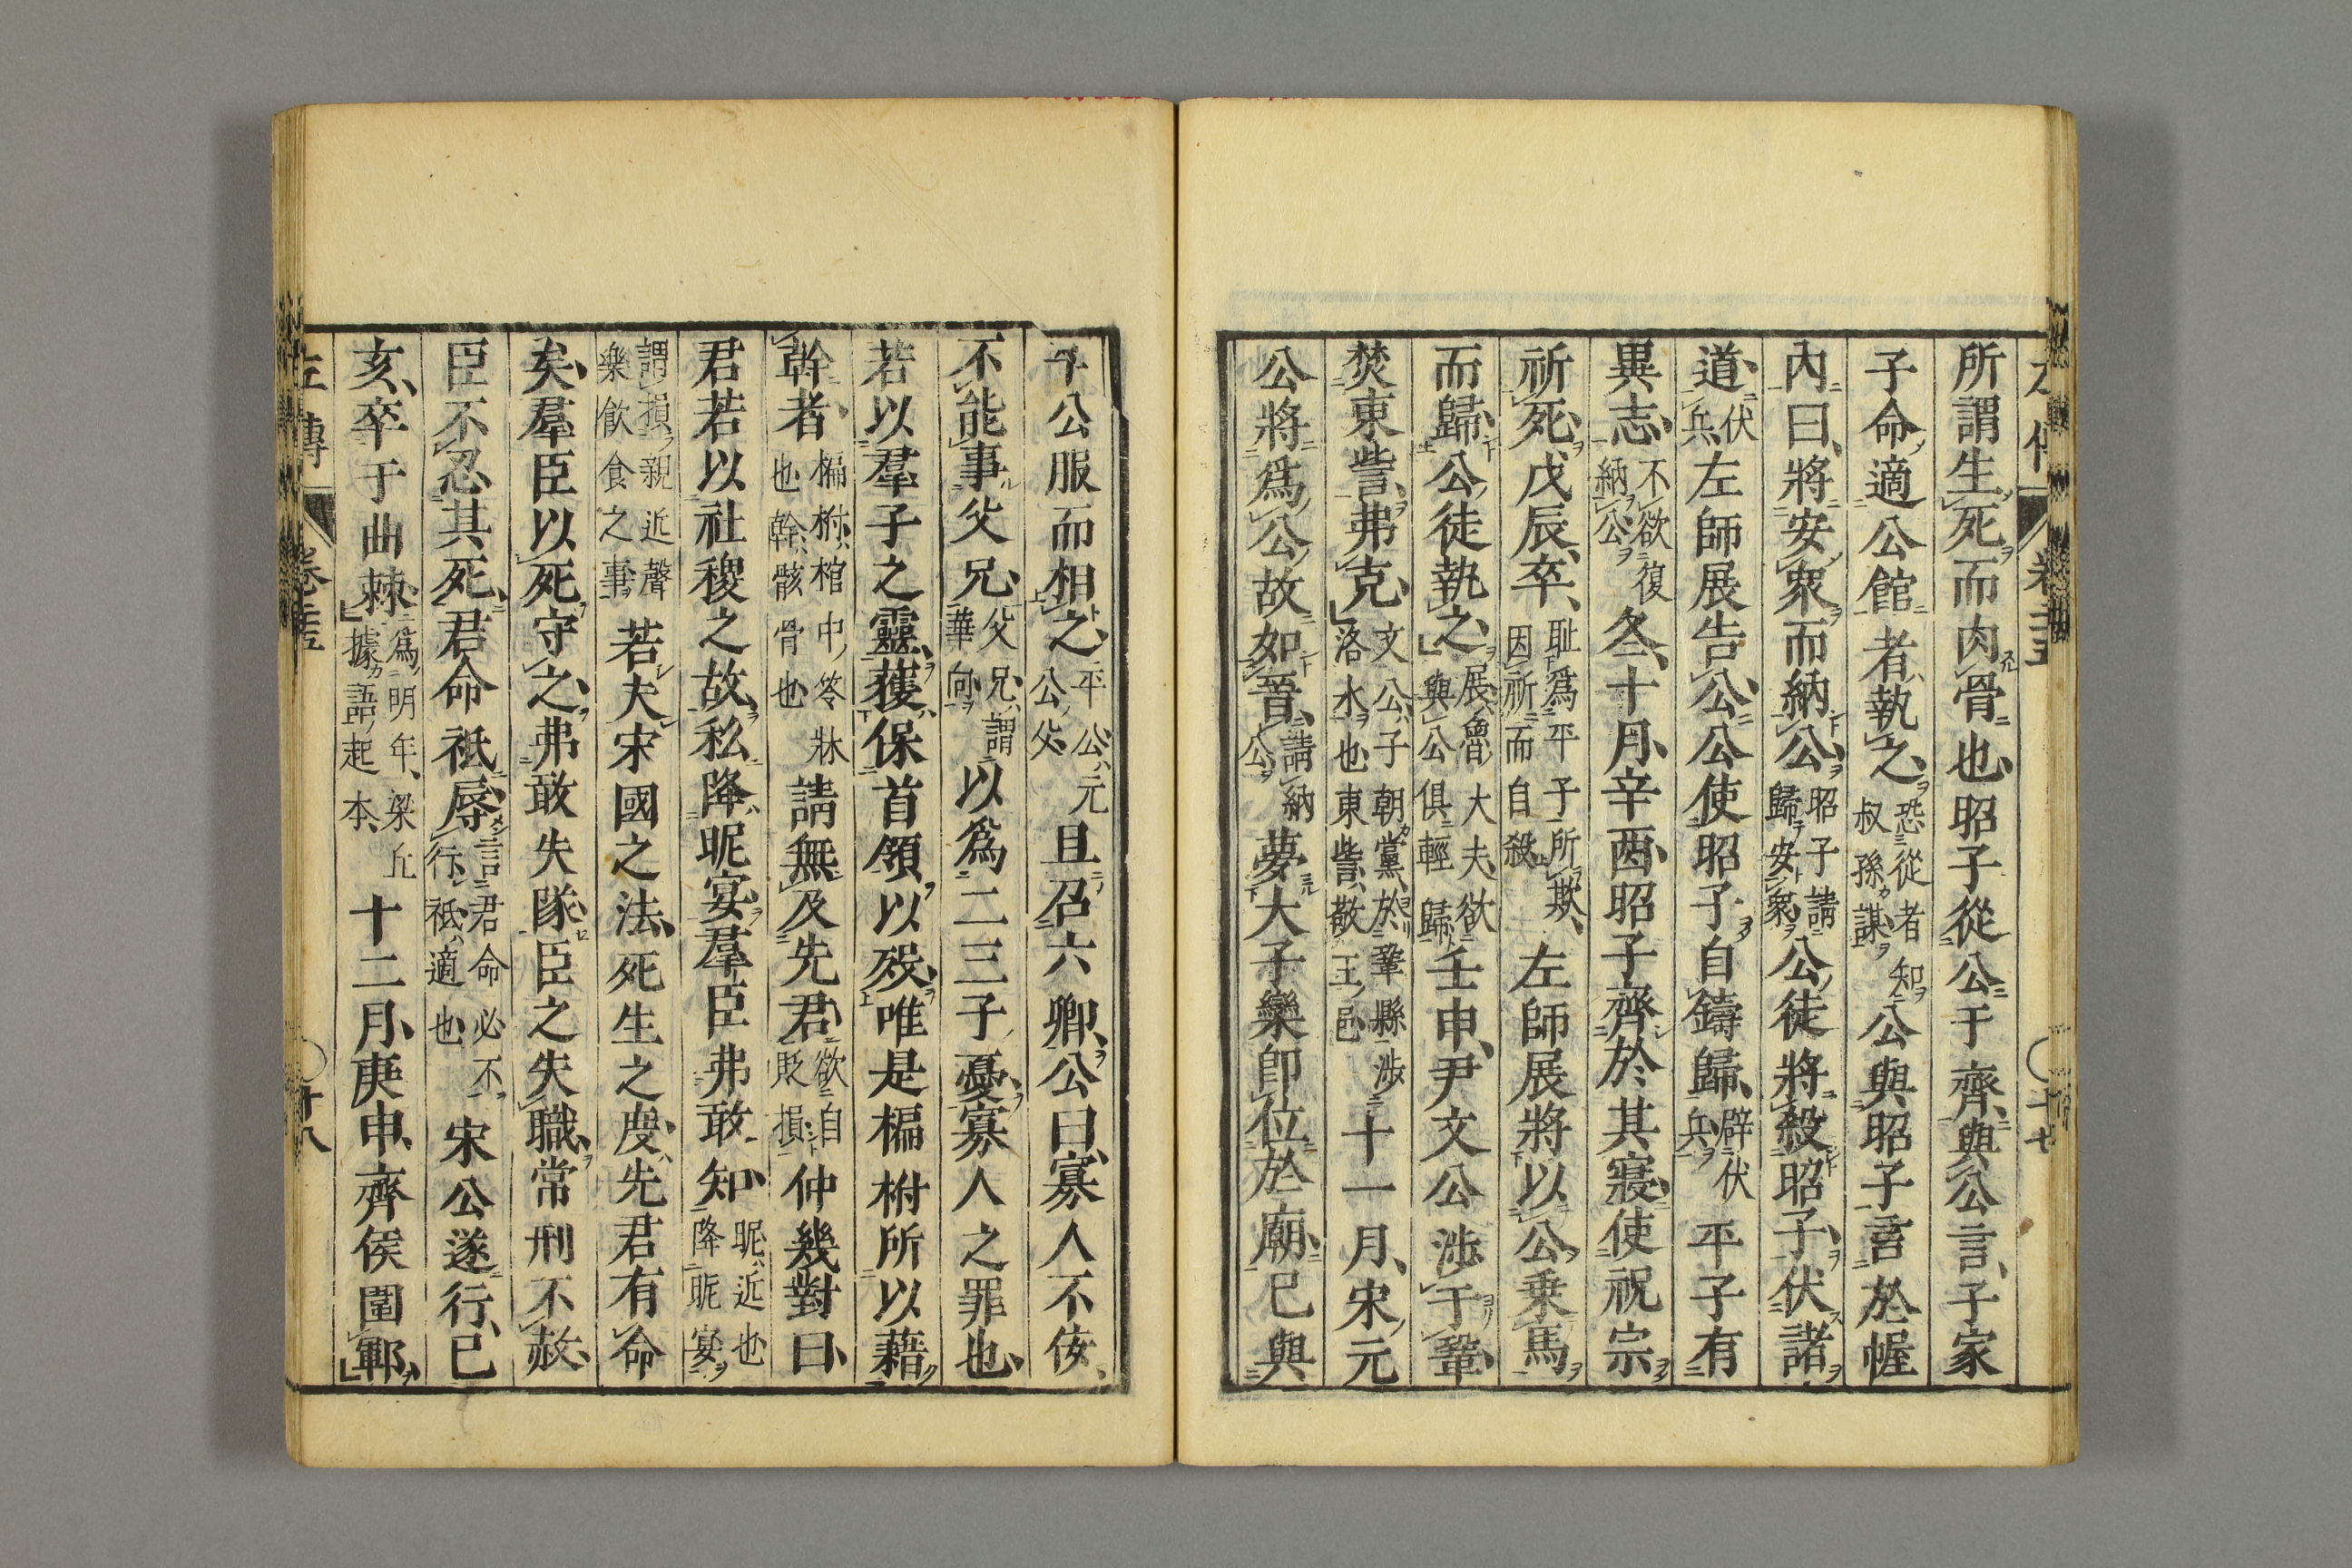 所謂生死而肉骨也昭子從公于齊與公言子家
子命適公館者執之恐從者知叔孫謀公與昭子言於幄
內曰將安衆而納公昭子請歸安衆公徒將殺昭子伏諸
道伏兵左師展告公公使昭子自鑄歸辟伏兵平子有
異志不欲復納公冬十月辛酉昭子齊於其寢使祝宗
祈死戊辰卒恥爲平子所欺因祈而自殺左師展將以公乗馬
而歸公徒執之展魯大夫欲與公俱輕歸壬申尹文公涉于鞏
焚東訾弗克文公子朝黨於鞏縣涉洛水也東訾敬王邑十一月宋元
公將爲公故如晉請納公夢大子欒卽位於廟已與
平公服而相之平公元公父且召六卿公曰寡人不佞
不能事父兄父兄謂華向以爲二三子憂寡人之罪也
若以羣子之靈獲保首領以歿唯是楄柎所以藉
幹者楄柎棺中笭牀也幹骸骨也請無及先君欲自貶損仲幾對曰
君若以社稷之故私降昵宴羣臣弗敢知昵近也降昵宴
謂損親近聲樂飮食之事若夫宋國之法死生之度先君有命
矣羣臣以死守之弗敢失隊臣之失職常刑不赦
臣不忍其死君命祇辱言君命必不行祇適也宋公遂行已
亥卒于曲棘爲明年梁丘據語起本十二月庚申齊侯圍鄆
左傳 卷二十五 十八